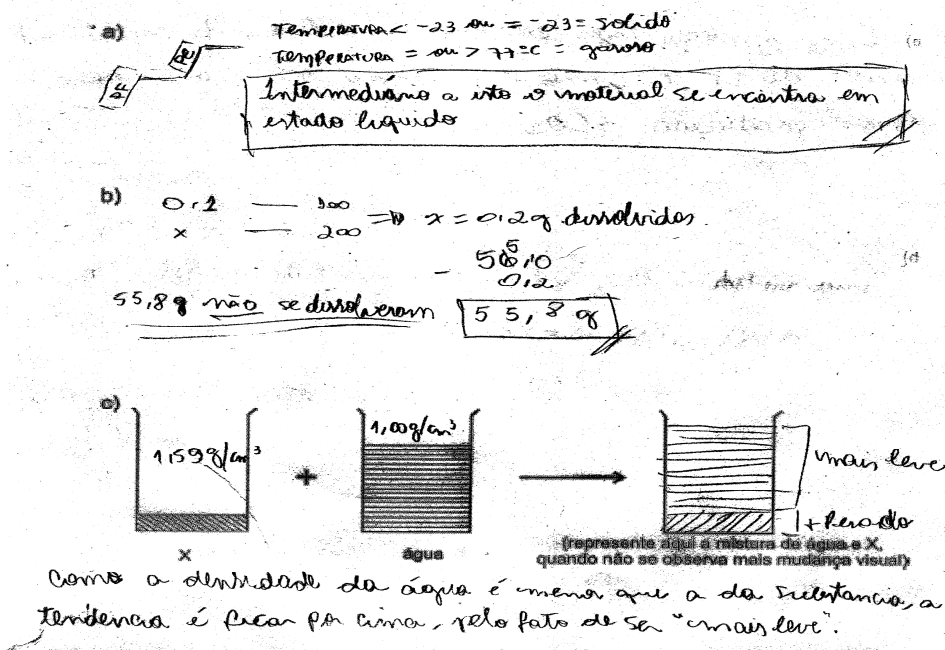 a)
Temperatura < -23 ou = -23 = solido
Temperatura = ou > 77°C = gasoso
PE
PF
Intermediário a isto o material se encontra em
estado liquido
b)
0,1 — 100
x — 200
=> x = 0,2g dissolvidos
56,0
5
- 0,2
55,8 g
55,8g não se dissolveram
c)
1,59g/cm³
+
1,00g/cm³
mais leve
+ Pesado
X
água
(represente aqui a mistura de água e X,
quando não se observa mais mudança visual)
Como a densidade da água é menor que a da substancia, a
tendência é ficar por cima, pelo fato de ser "mais leve".